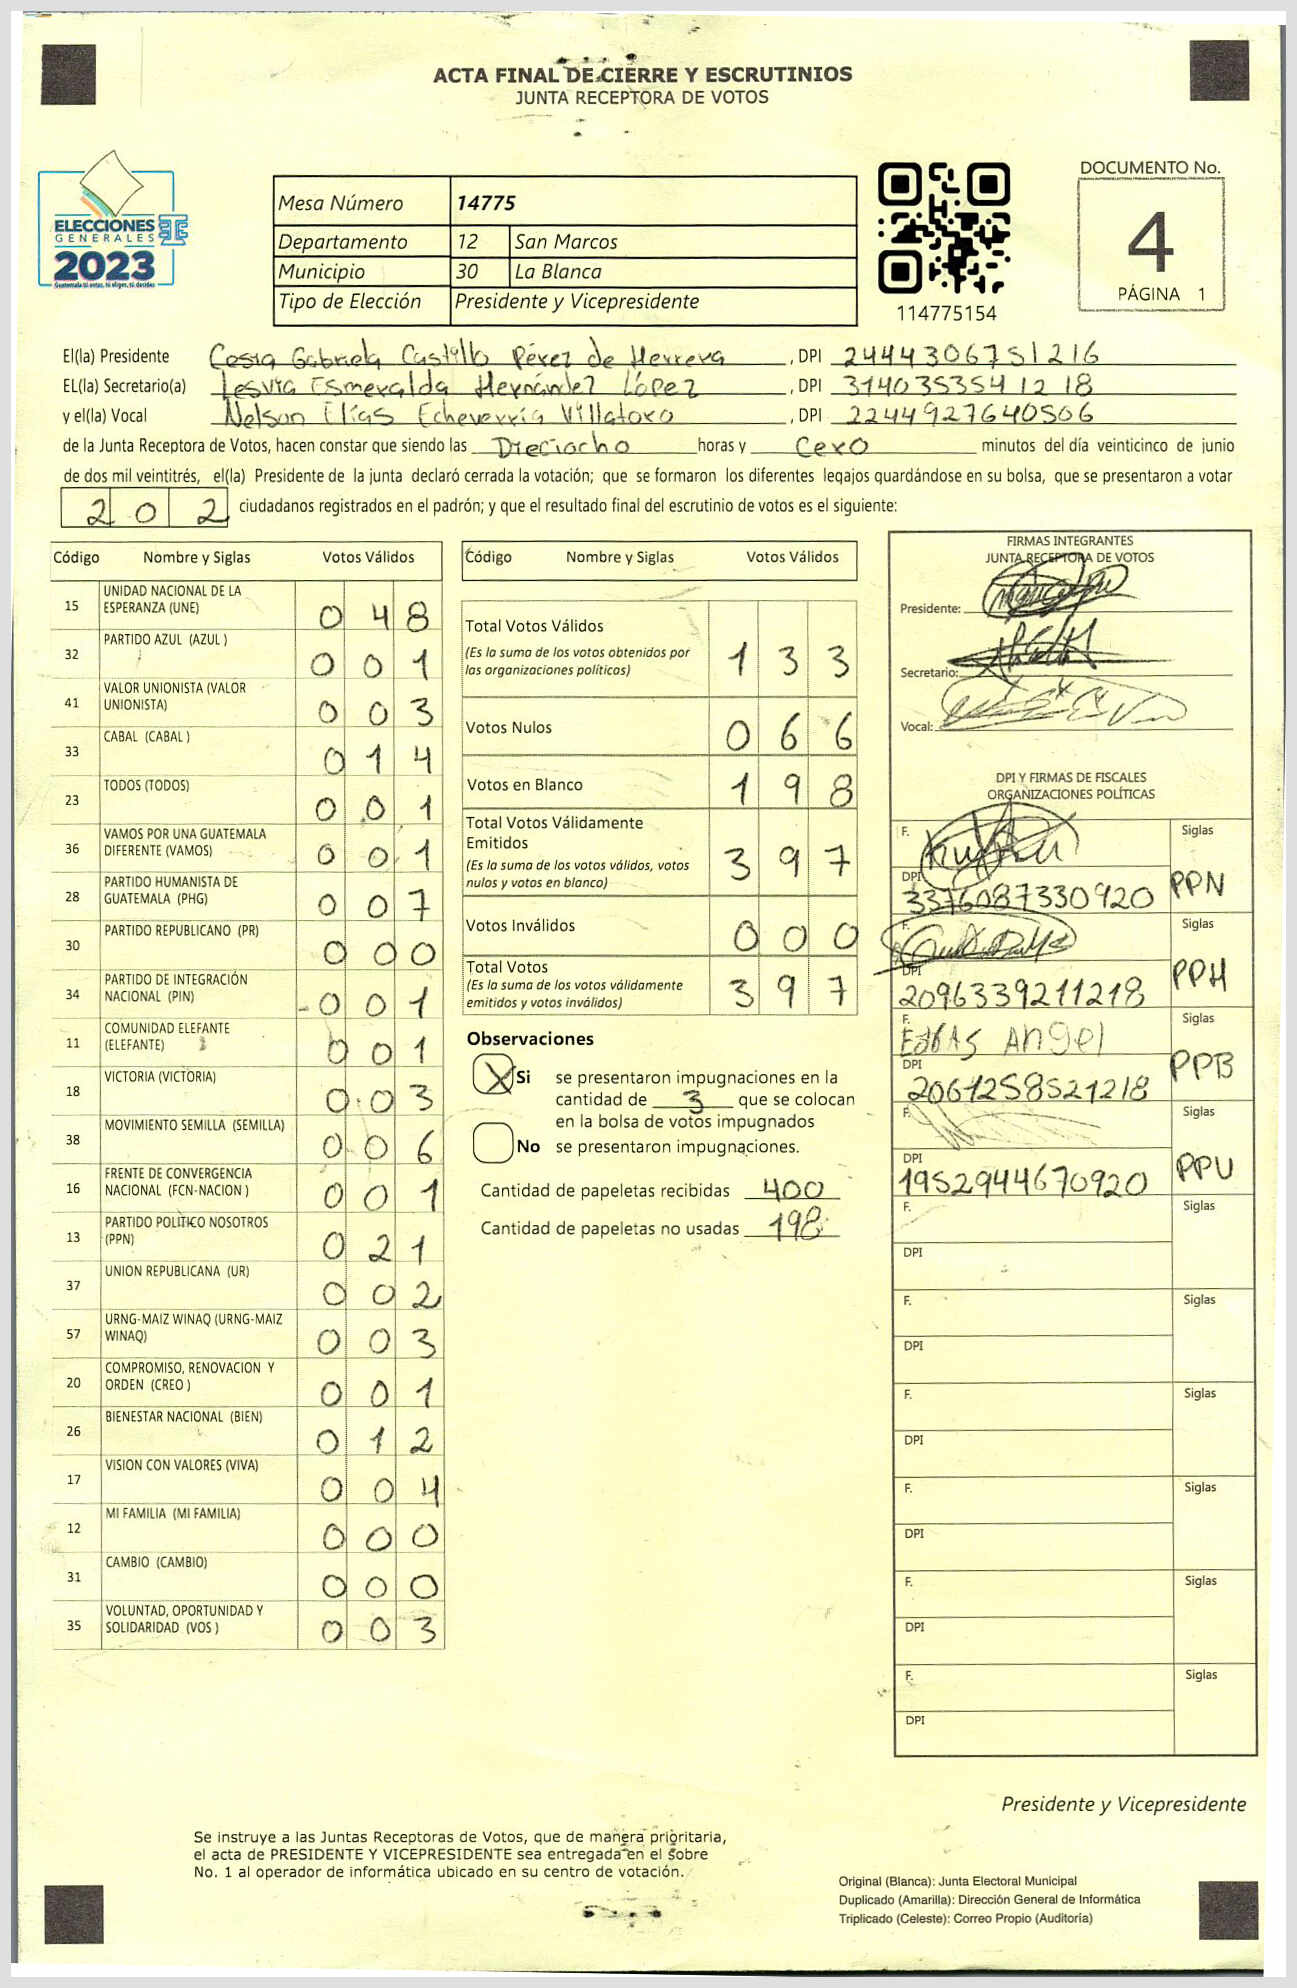 ACTA FINAL DE CIERRE Y ESCRUTINIOS
JUNTA RECEPTORA DE VOTOS
ELECCIONES
GENERALES
2023
Guatemala tú votas, tú eliges, tú decides
Mesa Número 14775
Departamento 12 San Marcos
Municipio 30 La Blanca
Tipo de Elección Presidente y Vicepresidente
114775154
DOCUMENTO No.
4
PÁGINA 1
El(la) Presidente Cesia Gabriela Castillo Pérez de Herrera , DPI 2444306751216
EL(la) Secretario(a) Lesvia Esmeralda Hernández López , DPI 3140353541218
y el(la) Vocal Nelson Elías Echeverría Villatoro , DPI 2244927640506
de la Junta Receptora de Votos, hacen constar que siendo las Dieciocho horas y Cero minutos del día veinticinco de junio
de dos mil veintitrés, el(la) Presidente de la junta declaró cerrada la votación; que se formaron los diferentes legajos guardándose en su bolsa, que se presentaron a votar
202 ciudadanos registrados en el padrón; y que el resultado final del escrutinio de votos es el siguiente:
Código Nombre y Siglas Votos Válidos
15 UNIDAD NACIONAL DE LA
ESPERANZA (UNE) 048
32 PARTIDO AZUL (AZUL ) 001
41 VALOR UNIONISTA (VALOR
UNIONISTA) 003
33 CABAL (CABAL ) 014
23 TODOS (TODOS) 001
36 VAMOS POR UNA GUATEMALA
DIFERENTE (VAMOS) 001
28 PARTIDO HUMANISTA DE
GUATEMALA (PHG) 007
30 PARTIDO REPUBLICANO (PR) 000
34 PARTIDO DE INTEGRACIÓN
NACIONAL (PIN) 001
11 COMUNIDAD ELEFANTE
(ELEFANTE) 001
18 VICTORIA (VICTORIA) 003
38 MOVIMIENTO SEMILLA (SEMILLA) 006
16 FRENTE DE CONVERGENCIA
NACIONAL (FCN-NACION ) 001
13 PARTIDO POLITICO NOSOTROS
(PPN) 021
37 UNION REPUBLICANA (UR) 002
57 URNG-MAIZ WINAQ (URNG-MAIZ
WINAQ) 003
20 COMPROMISO, RENOVACION Y
ORDEN (CREO ) 001
26 BIENESTAR NACIONAL (BIEN) 012
17 VISION CON VALORES (VIVA) 004
12 MI FAMILIA (MI FAMILIA) 000
31 CAMBIO (CAMBIO) 000
35 VOLUNTAD, OPORTUNIDAD Y
SOLIDARIDAD (VOS ) 003
Código Nombre y Siglas Votos Válidos
Total Votos Válidos
(Es la suma de los votos obtenidos por
las organizaciones políticas) 133
Votos Nulos 066
Votos en Blanco 198
Total Votos Válidamente
Emitidos
(Es la suma de los votos válidos, votos
nulos y votos en blanco) 397
Votos Inválidos 000
Total Votos
(Es la suma de los votos válidamente
emitidos y votos inválidos) 397
Observaciones
X Si se presentaron impugnaciones en la
cantidad de 3 que se colocan
en la bolsa de votos impugnados
No se presentaron impugnaciones.
Cantidad de papeletas recibidas 400
Cantidad de papeletas no usadas 198
FIRMAS INTEGRANTES
JUNTA RECEPTORA DE VOTOS
Presidente:
Secretario:
Vocal:
DPI Y FIRMAS DE FISCALES
ORGANIZACIONES POLÍTICAS
F. Siglas
DPI 3376087330920 PPN
F. Siglas
DPI 2096339211218 PPH
F. Angel Siglas
DPI 2061258521218 PPB
F. Siglas
DPI 1952944670920 PPU
F. Siglas
DPI
F. Siglas
DPI
F. Siglas
DPI
F. Siglas
DPI
F. Siglas
DPI
F. Siglas
DPI
Presidente y Vicepresidente
Se instruye a las Juntas Receptoras de Votos, que de manera prioritaria,
el acta de PRESIDENTE Y VICEPRESIDENTE sea entregada en el sobre
No. 1 al operador de informática ubicado en su centro de votación.
Original (Blanca): Junta Electoral Municipal
Duplicado (Amarilla): Dirección General de Informática
Triplicado (Celeste): Correo Propio (Auditoría)